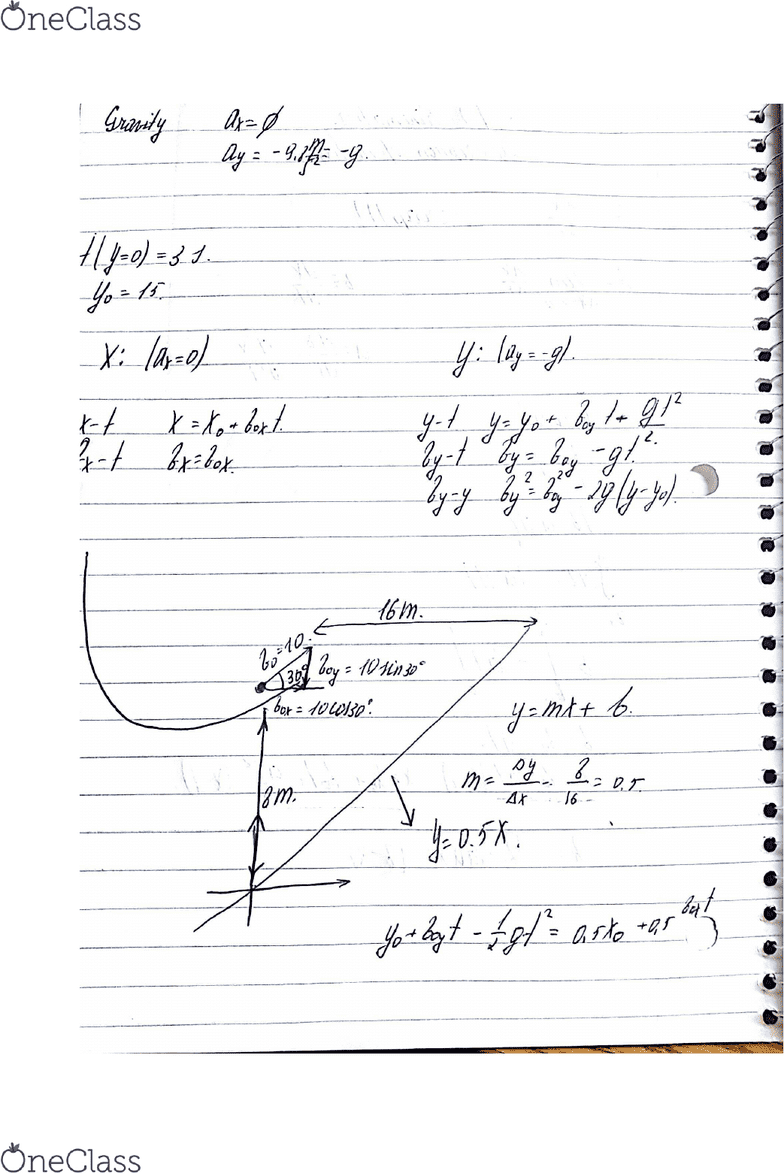 OneClass
Gravity ax = ∅
ay = -9.8 m/s² = -g.
t(y=0) = 3 s.
y₀ = 15.
X: (ax=0) y: (ay = -g).
x-t x = x₀ + v₀x t. y-t y = y₀ + v₀y t + gt²/2.
vx-t vx = v₀x. vy-t vy = v₀y - gt.
vy-y vy² = v₀y² - 2g(y-y₀).
16m.
v₀=10.
30° v₀y = 10 sin30°
v₀x = 10cos30°. y = mx + b.
8m. m = Δy/Δx = 8/16 = 0.5
y = 0.5x.
y₀ + v₀y t - 1/2 gt² = 0.5x₀ + 0.5 v₀x t
OneClass